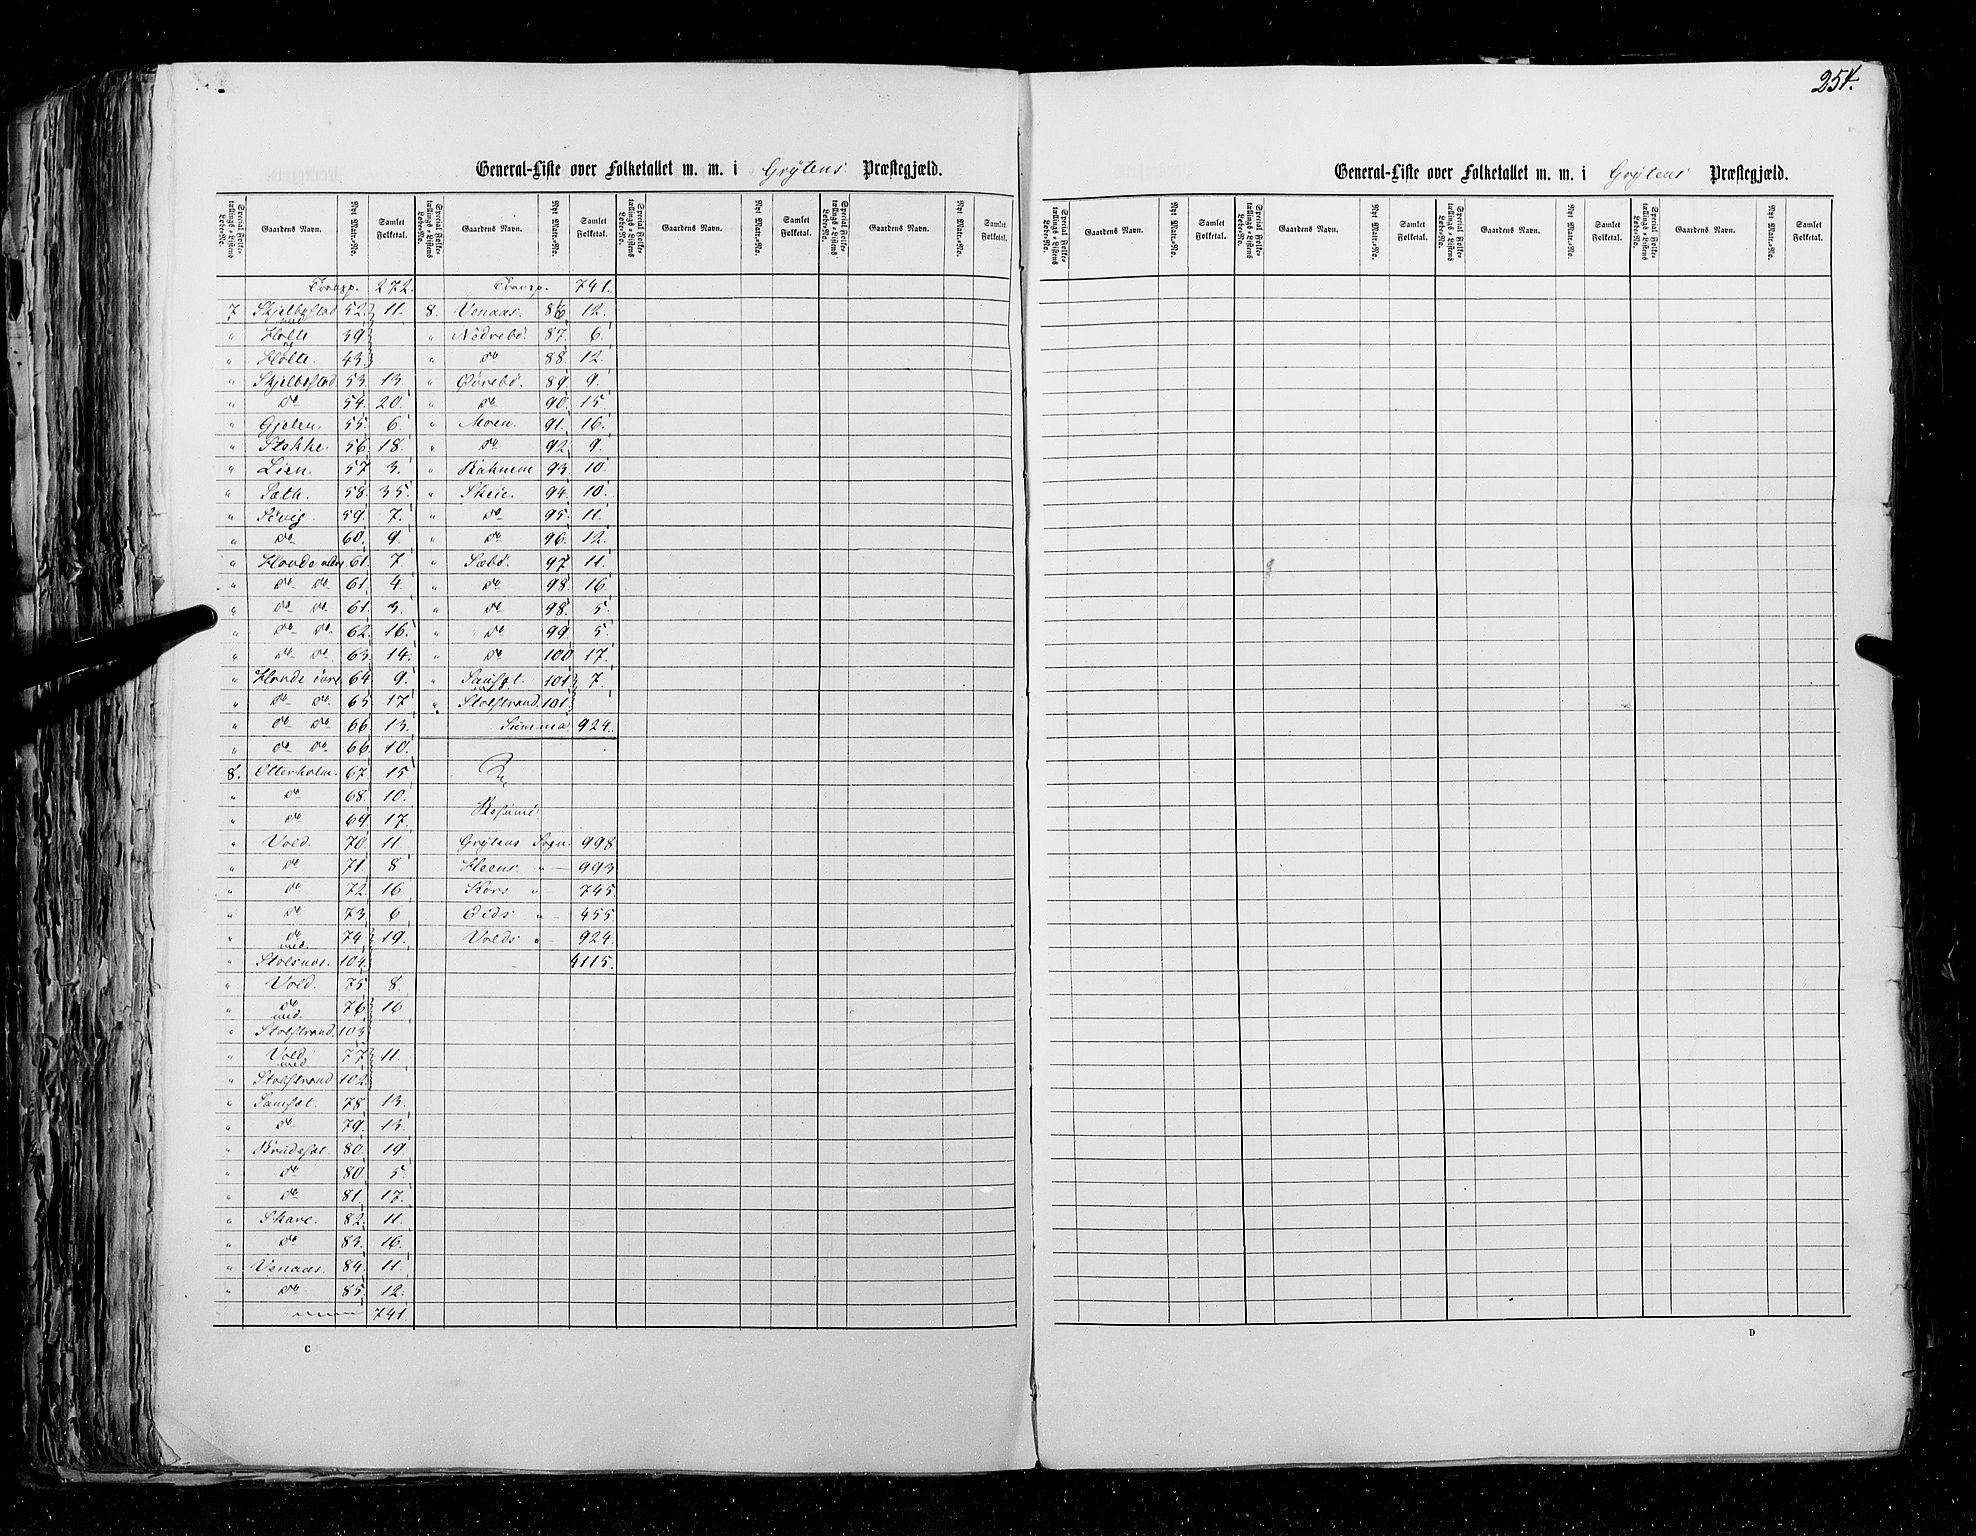 254.
General-Liste over Folketallet m. m. i Grÿtens Præstegjæld.
Special Folketællings-Listens Løbe-No. Gaardens Navn. Nyt Matr.-No. Samlet Folketal. Special Folketællings-Listens Løbe-No. Gaardens Navn. Nyt Matr.-No. Samlet Folketal. Special Folketællings-Listens Løbe-No. Gaardens Navn. Nyt Matr.-No. Samlet Folketal. Special Folketællings-Listens Løbe-No. Gaardens Navn. Nyt Matr.-No. Samlet Folketal.
Transp. 272.
7 Skjelbostad 52. 11.
med
" Holte 39
og
" Holte. 43.
" Skjelbostad 53. 13.
" do 54. 20.
" Gjelen. 55. 6.
" Stokke. 56. 18.
" Lien. 57. 3.
" Sæth. 58. 35.
" Sövig. 59. 7.
" do 60. 9.
" Hovde nedre 61. 7
" do do 61. 4.
" do do 61. 3.
" do do 62. 16.
" do do 63. 14.
" Hovde övre 64 9.
" do do 65 17
" do do 66. 13.
" do do 66. 10.
8. Otterholm. 67. 15
" do 68. 10.
" do 69. 17.
" Vold. 70. 11
" do 71. 8
" do 72. 16
" do 73. 6
" do 74. 19.
med.
" Stolsnes. 104.
" Vold. 75. 8.
" do 76. 16
med.
" Stolstrand. 103
" Vold 77 11.
med
" Stolstrand 102.
" Samset. 78 13.
" do 79. 13.
" Brudeset. 80. 19
" do 80. 5.
" do 81. 17.
" Skare. 82. 11.
" do 83. 16.
" Venaas. 84. 11.
" do 85. 12.
741.
Transp. 741.
8. Venaas. 86 12.
" Nedrebö. 87. 6.
" do 88. 12.
" Øvrebö. 89. 9.
" do 90. 15.
" Moen. 91. 16.
" do 92. 9.
" 93. 10.
" Skeie. 94. 10.
" do 95. 11.
" do 96. 12.
" Sæbö. 97 11.
" do 98. 16.
" do 98. 5.
" do 99. 5.
" do 100 17.
" Samset. 101 7.
med.
" Stolstrand. 101
Summa 924.
Resumé
Grÿtens Sogn. 998
Heens " 993
Kors " 745.
Eids " 455
Volds " 924.
4115.
C
General-Liste over Folketallet m. m. i Grÿtens Præstegjæld.
Special Folketællings-Listens Løbe-No. Gaardens Navn. Nyt Matr.-No. Samlet Folketal. Special Folketællings-Listens Løbe-No. Gaardens Navn. Nyt Matr.-No. Samlet Folketal. Special Folketællings-Listens Løbe-No. Gaardens Navn. Nyt Matr.-No. Samlet Folketal. Special Folketællings-Listens Løbe-No. Gaardens Navn. Nyt Matr.-No. Samlet Folketal.
D